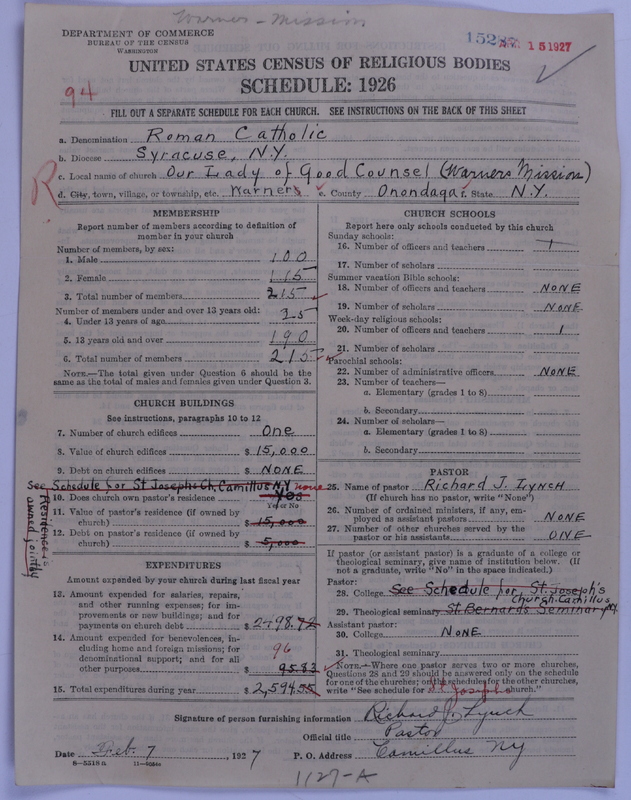 Warner - Mission
DEPARTMENT OF COMMERCE
BUREAU OF THE CENSUS
WASHINGTON
15 1927
UNITED STATES CENSUS OF RELIGIOUS BODIES
SCHEDULE: 1926
94
FILL OUT A SEPARATE SCHEDULE FOR EACH CHURCH. SEE INSTRUCTIONS ON THE BACK OF THIS SHEET
a. Denomination Roman Catholic
b. Diocese Syracuse, N.Y.
c. Local name of church Our Lady of Good Counsel (Warners Mission)
R
d. City, town, village, or township, etc. Warners e. County Onondaga f. State N.Y.
MEMBERSHIP
Report number of members according to definition of
member in your church
Number of members, by sex:
1. Male 100
2. Female 115
3. Total number of members 215
Number of members under and over 13 years old:
4. Under 13 years of age 25
5. 13 years old and over 190
6. Total number of members 215
NOTE.—The total given under Question 6 should be the
same as the total of males and females given under Question 3.
CHURCH BUILDINGS
See instructions, paragraphs 10 to 12
7. Number of church edifices One
8. Value of church edifices $ 15,000
9. Debt on church edifices $ NONE
See Schedule for St Joseph's Ch, Camillus NY none
10. Does church own pastor's residence Yes
Yes or No
11. Value of pastor's residence (if owned by
church) $ 15,000
12. Debt on pastor's residence (if owned by
church) $ 5,000
Residence is
owned jointly
EXPENDITURES
Amount expended by your church during last fiscal year
13. Amount expended for salaries, repairs,
and other running expenses; for im-
provements or new buildings; and for
payments on church debt $ 2498.72
14. Amount expended for benevolences, in-
cluding home and foreign missions; for
denominational support; and for all
other purposes $ 95.83
96
15. Total expenditures during year $ 2,594.55
CHURCH SCHOOLS
Report here only schools conducted by this church
Sunday schools:
16. Number of officers and teachers 1
17. Number of scholars
Summer vacation Bible schools:
18. Number of officers and teachers NONE
19. Number of scholars NONE
Week-day religious schools:
20. Number of officers and teachers 1
21. Number of scholars
Parochial schools:
22. Number of administrative officers NONE
23. Number of teachers—
a. Elementary (grades 1 to 8)
b. Secondary
24. Number of scholars—
a. Elementary (grades 1 to 8)
b. Secondary
PASTOR
25. Name of pastor Richard J. Lynch
(If church has no pastor, write "None")
26. Number of ordained ministers, if any, em-
ployed as assistant pastors NONE
27. Number of other churches served by the
pastor or his assistants ONE
If pastor (or assistant pastor) is a graduate of a college or
theological seminary, give name of institution below. (If
not a graduate, write "No" in the space indicated.)
Pastor:
28. College See Schedule for St. Joseph's
Church-Camillus
29. Theological seminary St Bernards Seminary NY.
Assistant pastor:
30. College NONE
31. Theological seminary
NOTE.—Where one pastor serves two or more churches,
Questions 28 and 29 should be answered only on the schedule
for one of the churches; on the schedules for the other churches,
write "See schedule for St Josephs church."
Signature of person furnishing information Richard J. Lynch
Official title Pastor
Date Feb. 7, 1927 P. O. Address Camillus NY
8-5318a
1127-A